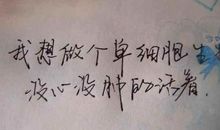 我想做个单细胞生
没心没肺的活着.